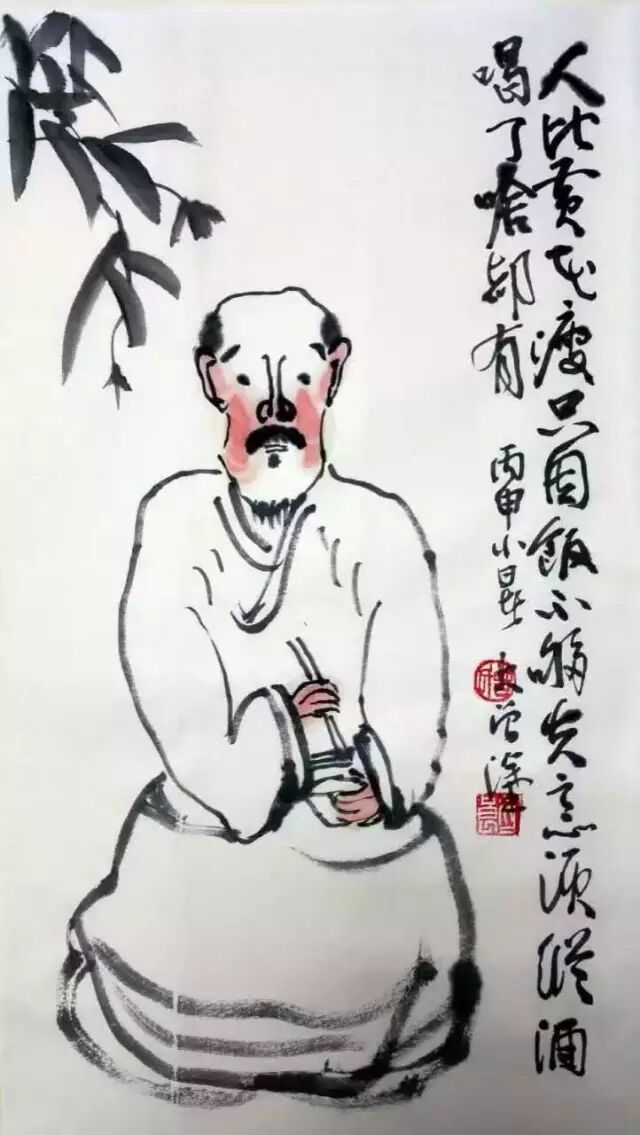 人比黄花瘦只因饭不够失意须纵酒
喝了啥都有
丙申小暑